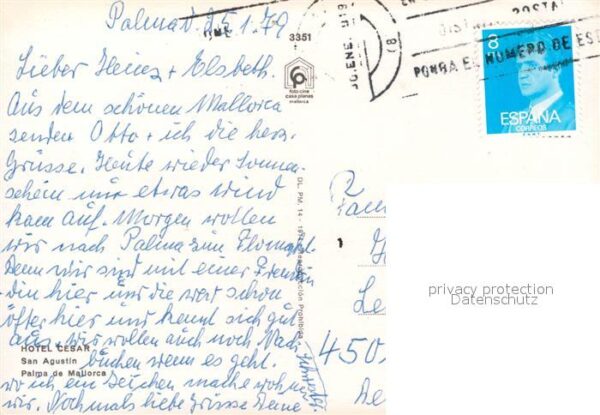 Palma d. 25.1.79
Lieber Heinz + Elsbeth.
Aus dem schönen Mallorca
senden Otto + ich die herz.
Grüsse. Heute wieder Sonnen-
schein nur etwas Wind
kam auf. Morgen wollen
wir nach Palma zum Flohmarkt
Denn wir sind mit einer Freundin
hier und die war schon
öfter hier und kennt sich gut
aus. Wir wollen auch noch Nach-
buchen wenn es geht.
wo ich ein Zeichen mache wohnen
wir. Nochmals liebe Grüsse Deine
HOTEL CESAR
San Agustin
Palma de Mallorca
3351
foto-cine
casa planas
mallorca
DL. PM. 14 - Prohibida
POSTAL
PONGA EL NUMERO DE
8
ESPAÑA
CORREOS
Fam
Le
450
privacy protection
Datenschutz